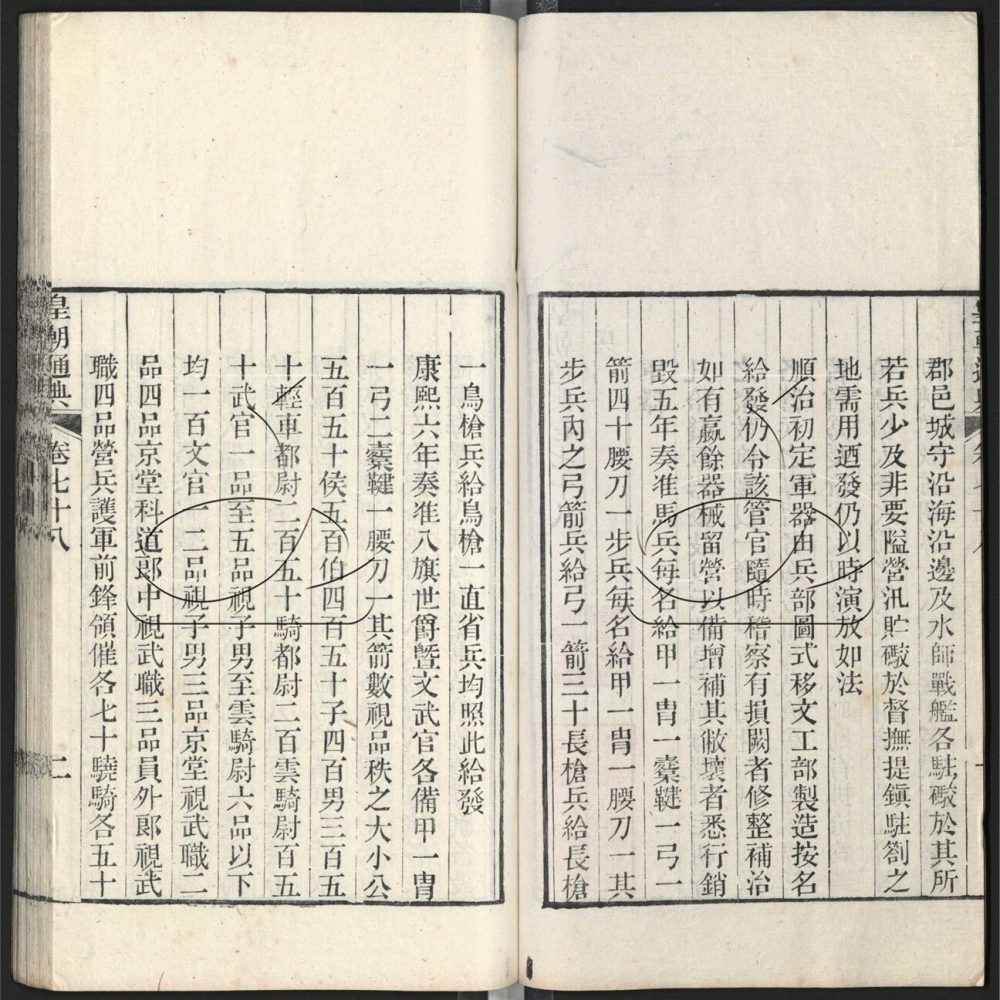 郡邑城守沿海沿邊及水師戰艦各駐礮於其所
若兵少及非要隘營汛貯礮於督撫提鎮駐劄之
地需用迺發仍以時演放如法
順治初定軍器由兵部圖式移文工部製造按名
給發仍令該管官隨時稽察有損闕者修整補治
如有贏餘器械留營以備增補其敝壞者悉行銷
毀五年奏准馬兵每名給甲一胄一櫜鞬一弓一
箭四十腰刀一步兵每名給甲一胄一腰刀一其
步兵內之弓箭兵給弓一箭三十長槍兵給長槍
一鳥槍兵給鳥槍一直省兵均照此給發
康熙六年奏准八旗世爵暨文武官各備甲一胄
一弓二櫜鞬一腰刀一其箭數視品秩之大小公
五百五十侯五百伯四百五十子四百男三百五
十輕車都尉二百五十騎都尉二百雲騎尉百五
十武官一品至五品視子男至雲騎尉六品以下
均一百文官一二品視子男三品京堂視武職二
品四品京堂科道郎中視武職三品員外郎視武
職四品營兵護軍前鋒領催各七十驍騎各五十
皇朝通典 卷七十八 二